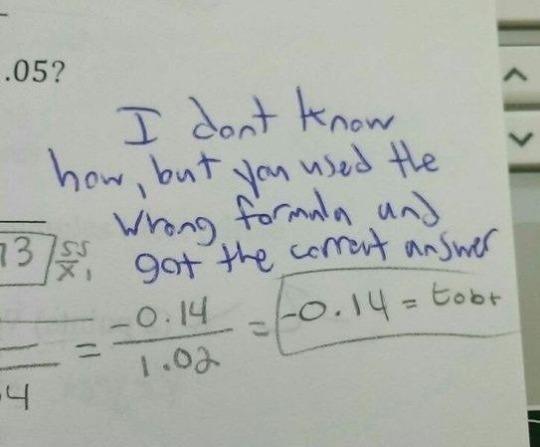 .05?
I dont know
how, but you used the
wrong formula and
got the correct answer
73 SS/X₁
-0.14 / 1.02 = -0.14 = tobt
4